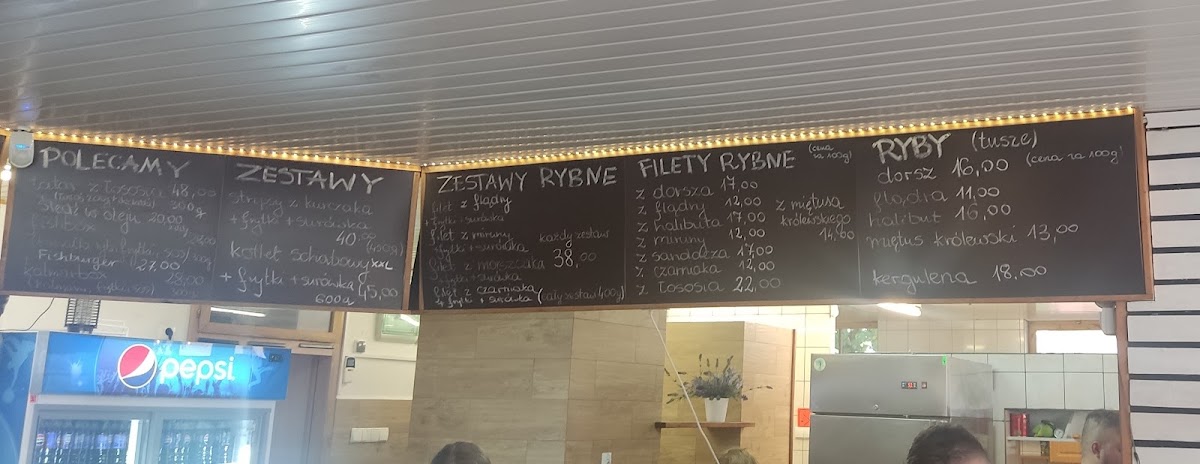 POLECAMY
z łososia 48,00
300g
Śledź w oleju 20,00
fishbox
Fishburger 27,00
28,00
ZESTAWY
stripsy z kurczaka
+ frytki + surówka
40,00 (400g)
kotlet schabowy XXL
+ frytki + surówka
600g 45,00
ZESTAWY RYBNE
filet z flądry
+ frytki + surówka
filet z miruny
frytki + surówka
każdy zestaw
38,00
filet z morszczuka
+ frytki + surówka
filet z czarniaka
+ frytki + surówka
(cały zestaw 400g)
FILETY RYBNE (cena za 100g)
z dorsza 17,00
z flądry 12,00
z halibuta 17,00
z miruny 12,00
z sandacza 17,00
z czarniaka 12,00
z łososia 22,00
z miętusa
królewskiego
14,00
RYBY (tusze)
(cena za 100g)
dorsz 16,00
flądra 11,00
halibut 16,00
miętus królewski 13,00
kergulena 18,00
pepsi